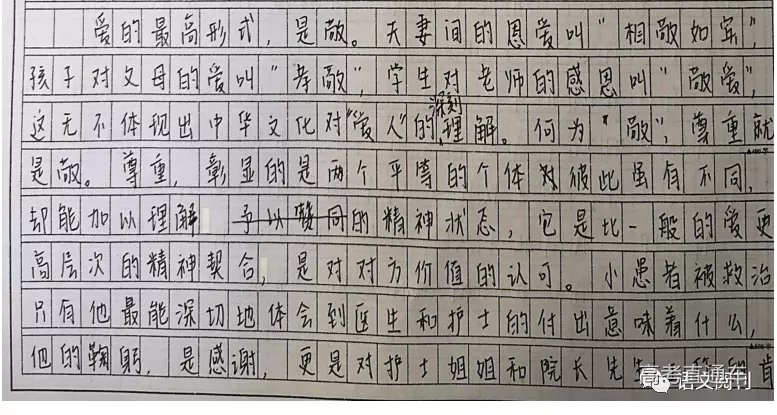 爱的最高形式，是敬。夫妻间的恩爱叫“相敬如宾”，
孩子对父母的爱叫“孝敬”，学生对老师的感恩叫“敬爱”，
这无不体现出中华文化对“爱人”的深刻理解。何为“敬”，尊重就
是敬。尊重，彰显的是两个平等的个体对彼此虽有不同，
却能加以理解 予以赞同的精神状态，它是比一般的爱更
高层次的精神契合，是对对方价值的认可。小患者被救治
只有他最能深切地体会到医生和护士的付出意味着什么，
他的鞠躬，是感谢，更是对护士姐姐和院长先生 的肯
高考直通车
语文阅刊